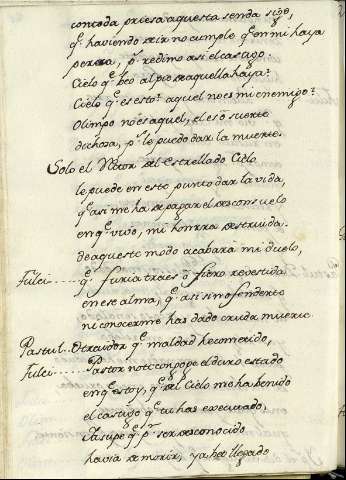 con toda priesa aquesta senda sigo,
q̃ haviendo de ir no cumple q̃ en mi haya
pereza, p.ʳ redimo asi el castigo.
Cielo q̃ beo al pie de aquella haya?
Cielo q̃ es esto? aquel no es mi enemigo?
Olimpo no es aquel, el es ô suerte
dichosa, p.ʳ le puedo dar la muerte.
Solo el Retor del Estrellado Cielo
le puede en este punto dar la vida,
q̃ asi me ha de pagar el desconsuelo
en q̃ vivo, mi honrra destruida.
de aqueste modo acabará mi duelo,
Fulci.....q̃ furia traes ô fiero revestida
en ese alma, q̃ asi sin ofenderte
ni conocerme has dado cruda muerte
Pastul. O traidor q̃ maldad he cometido,
Fulci.....Pastor no te congoge el duro estado
en q̃ estoy, q̃ del Cielo me ha benido
el castigo q̃ tu has executado,
Ya supe q̃ p.ʳ ser desconocido
havia de morir, ya ha llegado